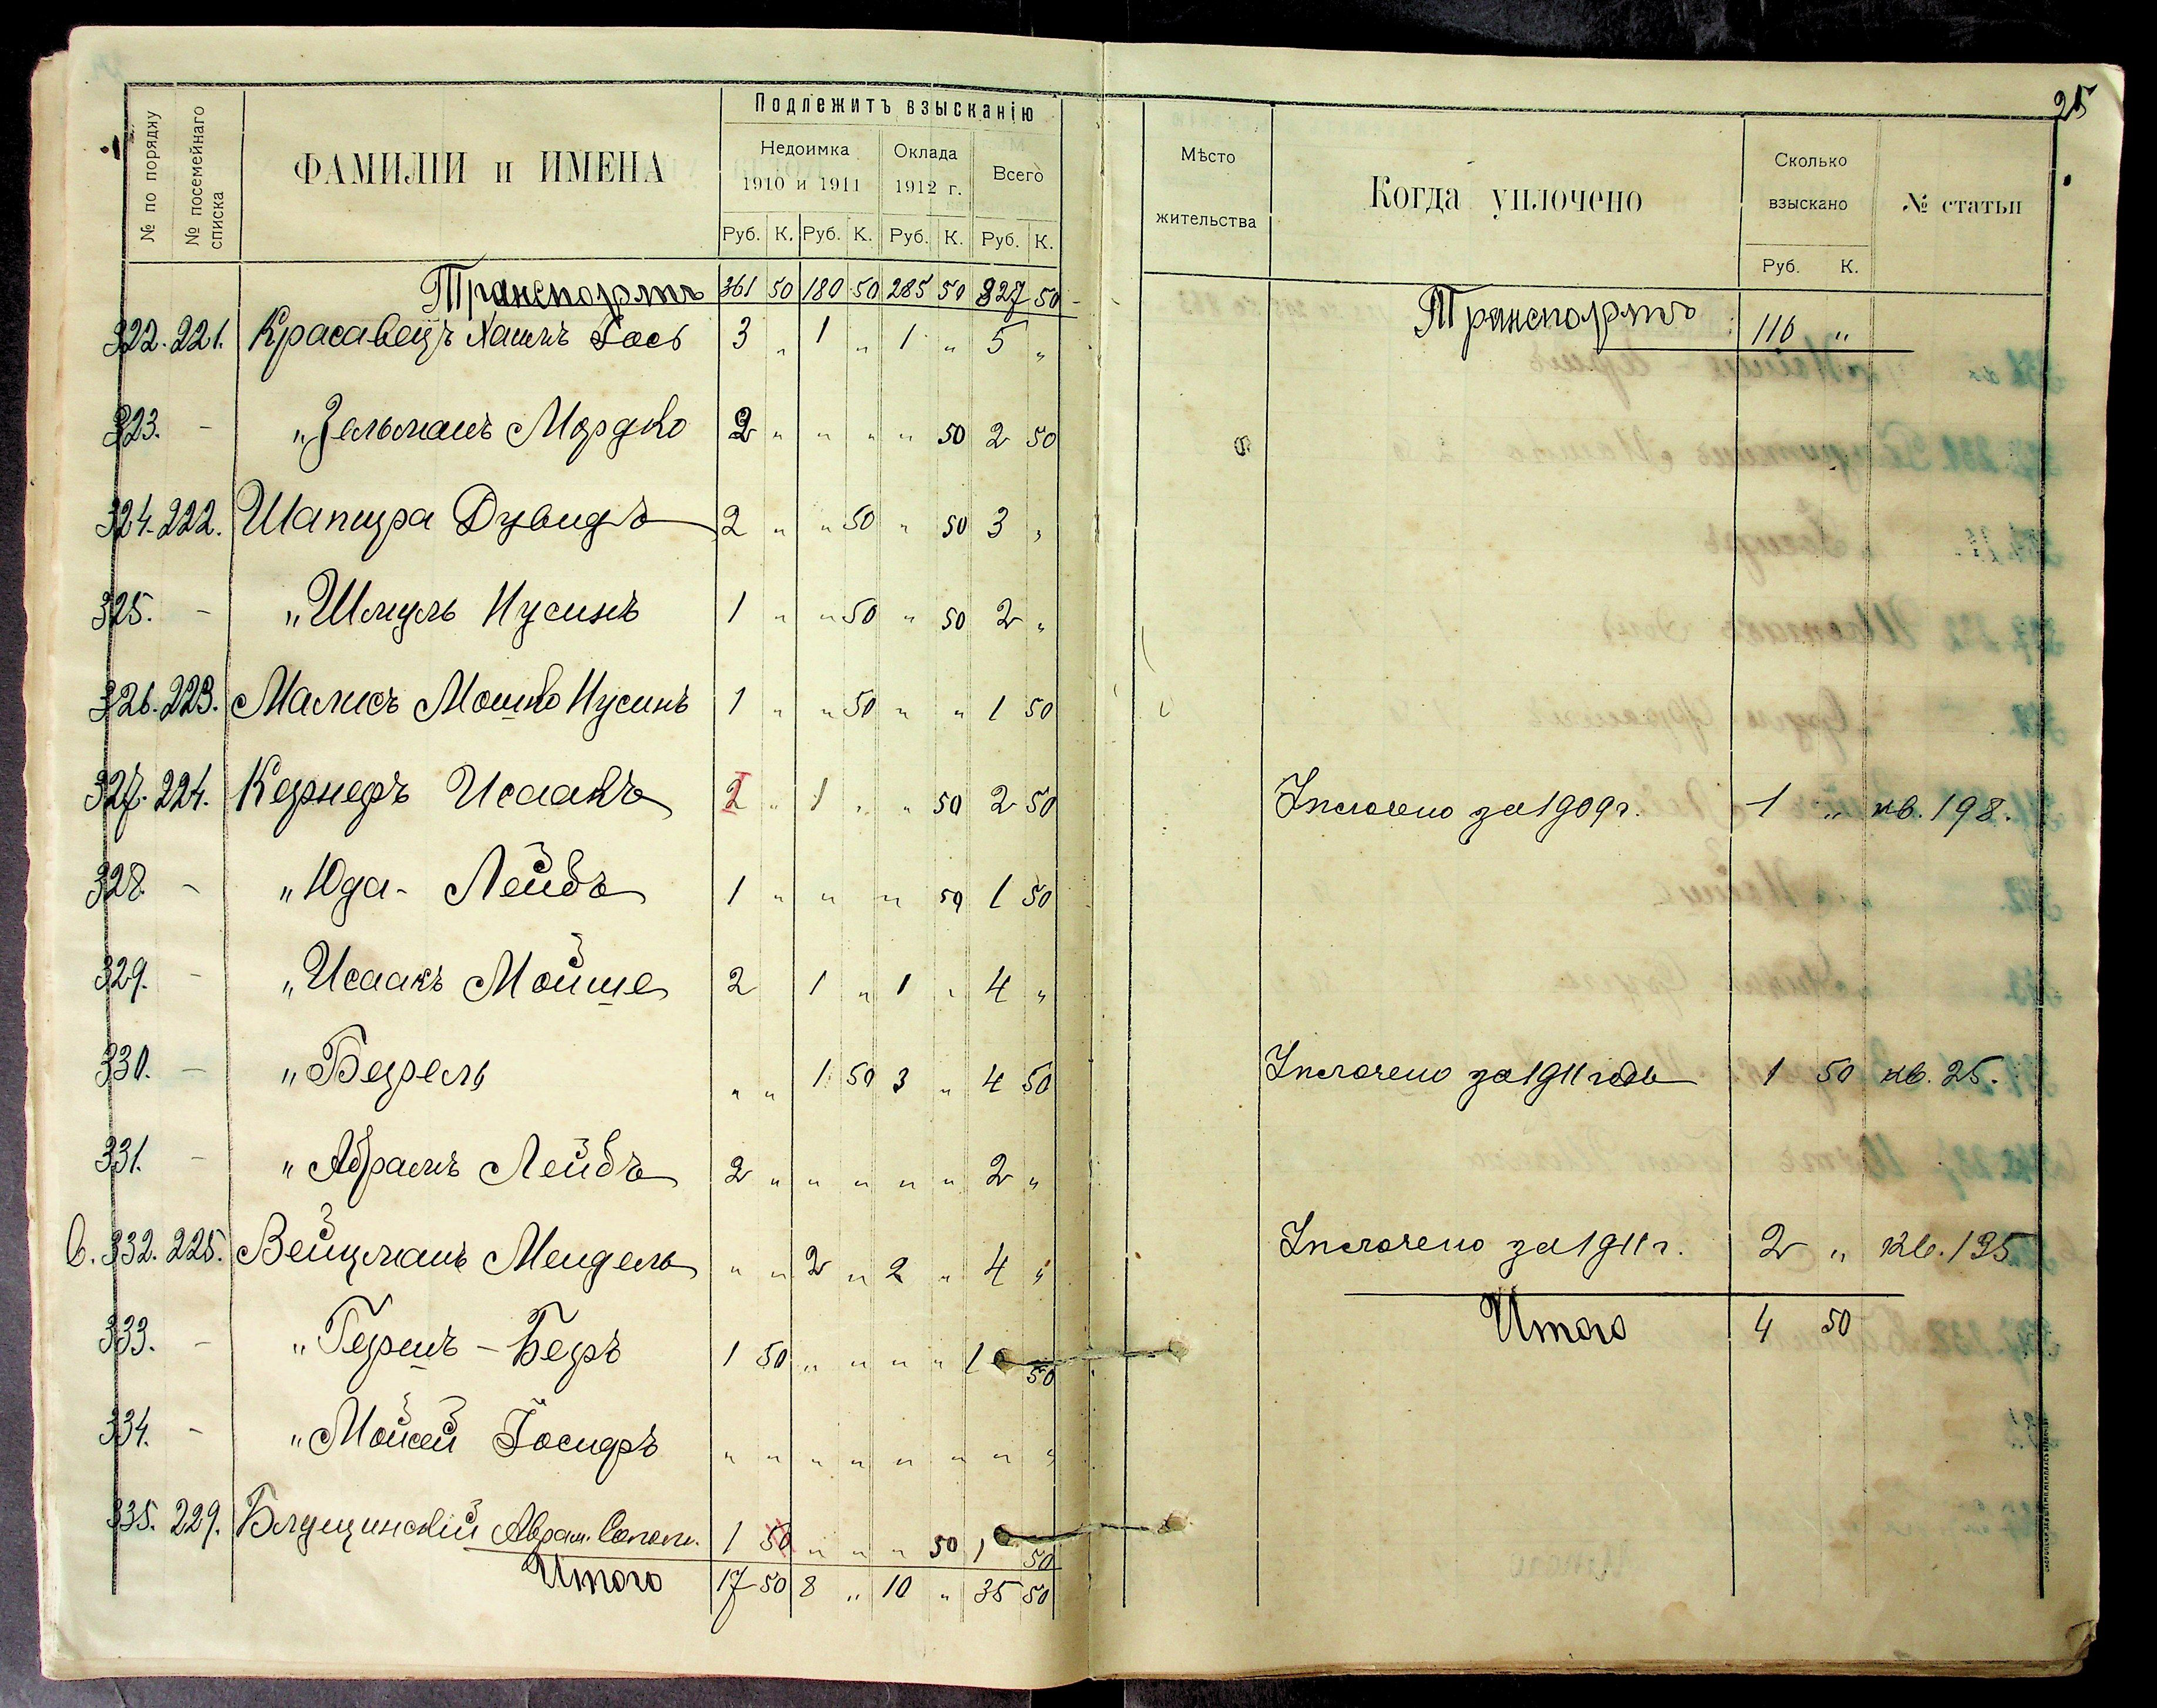 25
Подлежитъ взысканію
№ по порядку № посемейнаго списка ФАМИЛІИ и ИМЕНА Недоимка 1910 и 1911 Оклада 1912 г. Всего Мѣсто жительства Когда уплочено Сколько взыскано № статьи
Руб. К. Руб. К. Руб. К. Руб. К. Руб. К.
Транспортъ 361 50 180 50 285 50 827 50 Транспортъ 116 "
322. 221. Красавецъ Хаимъ Іось 3 " 1 " 1 " 5 "
323. - " Зельманъ Мордко 2 " " " " 50 2 50
324. 222. Шапира Дувидъ 2 " " 50 " 50 3 "
325. - " Шмуль Нусинъ 1 " " 50 " 50 2 "
326. 223. Малисъ Мошко Нусинъ 1 " " 50 " " 1 50
327. 224. Кернеръ Исаакъ 2 " 1 " " 50 2 50 Уплочено за 1909 г. 1 " кв. 198.
328. - " Юда - Лейбъ 1 " " " 50 1 50
329. - " Исаакъ Мойше 2 1 " 1 " 4 "
330. - " Берель " " 1 50 3 " 4 50 Уплочено за 1911 годъ 1 50 кв. 25.
331. - " Абрамъ Лейбъ 2 " " " " " 2 "
в. 332. 225. Вейцманъ Мендель " " 2 " 2 " 4 " Уплочено за 1911 г. 2 " кв. 135
333. - " Гершъ - Беръ 1 50 " " " " 1 50 Итого 4 50
334. - " Мойсей Іосифъ " " " " " " " "
335. 229. Блущинскій Аврам. 1 50 " " " 50 1 50
Итого 17 50 8 " 10 " 35 50